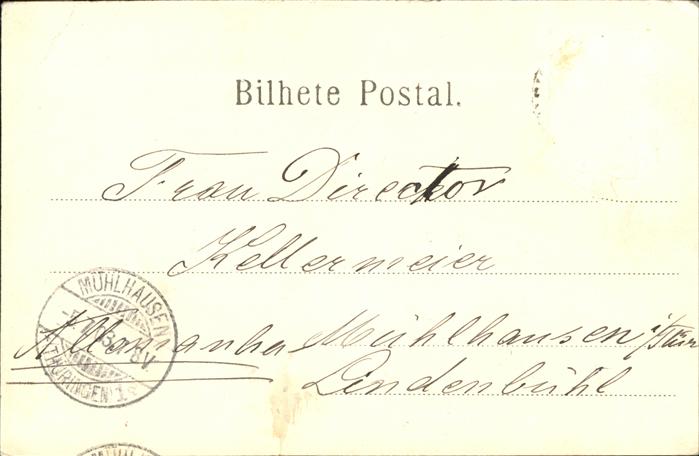 Bilhete Postal.
Frau Director
Kellermeier
Allemanha Mühlhausen i/Thür
Lindenbühl
MÜHLHAUSEN
(THÜRINGEN) 1.